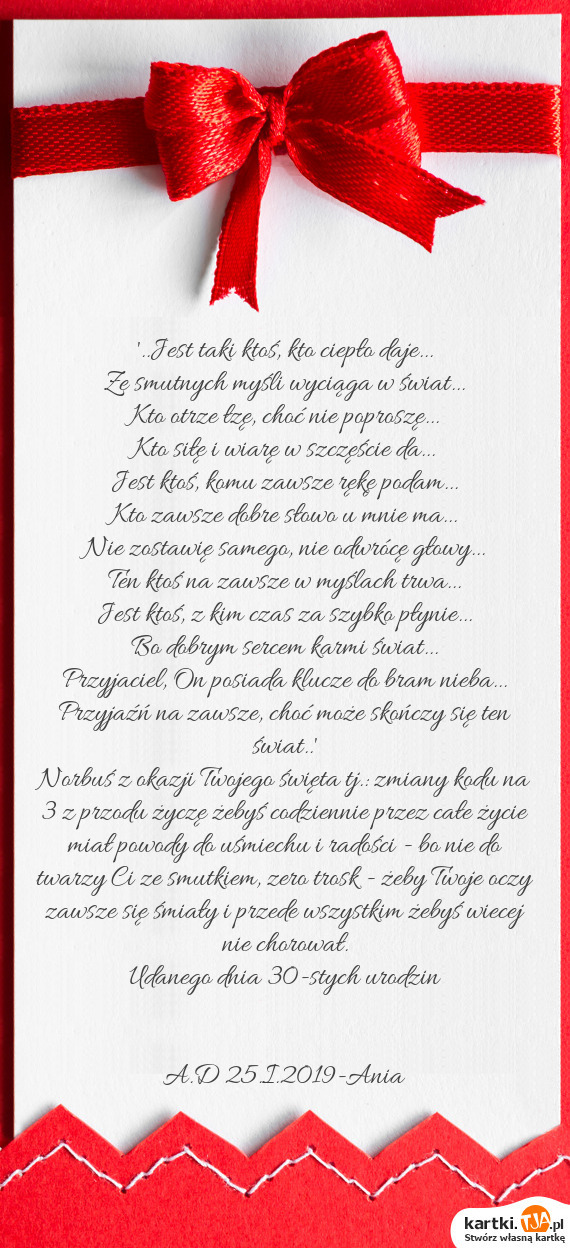 '..Jest taki ktoś, kto ciepło daje...
Ze smutnych myśli wyciąga w świat...
Kto otrze łzę, choć nie poproszę...
Kto siłę i wiarę w szczęście da...
Jest ktoś, komu zawsze rękę podam...
Kto zawsze dobre słowo u mnie ma...
Nie zostawię samego, nie odwrócę głowy...
Ten ktoś na zawsze w myślach trwa...
Jest ktoś, z kim czas za szybko płynie...
Bo dobrym sercem karmi świat...
Przyjaciel, On posiada klucze do bram nieba...
Przyjaźń na zawsze, choć może skończy się ten
świat..'
Norbuś z okazji Twojego święta tj.: zmiany kodu na
3 z przodu życzę żebyś codziennie przez całe życie
miał powody do uśmiechu i radości - bo nie do
twarzy Ci ze smutkiem, zero trosk - żeby Twoje oczy
zawsze się śmiały i przede wszystkim żebyś wiecej
nie chorował.
Udanego dnia 30-stych urodzin
A.D 25.I.2019-Ania
kartki.TJA.pl
Stwórz własną kartkę